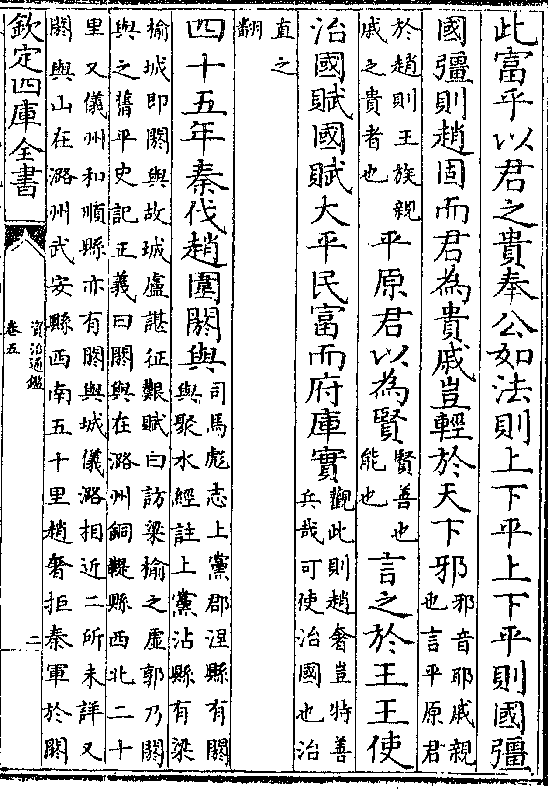 此富乎以君之貴奉公如法則上下平上下平則國彊
國彊則趙固而君為貴戚豈輕於天下邪
邪音耶戚親
也言平原君
於趙則王族親
戚之貴者也
平原君以為賢
賢善也
能也
言之於王王使
治國賦國賦大平民富而府庫實
觀此則趙奢豈特善
兵哉可使治國也治
直之
翻
四十五年秦伐趙圍閼與
司馬彪志上黨郡涅縣有閼
與聚水經註上黨沾縣有梁
榆城即閼與故城盧諶征艱賦曰訪梁榆之虛郭乃閼
與之舊平史記正義曰閼與在潞州銅鞮縣西北二十
里又儀州和順縣亦有閼與城儀潞相近二所未詳又
閼與山在潞州武安縣西南五十里趙奢拒秦軍於閼
欽定四庫全書
資治通鑑
卷五
二